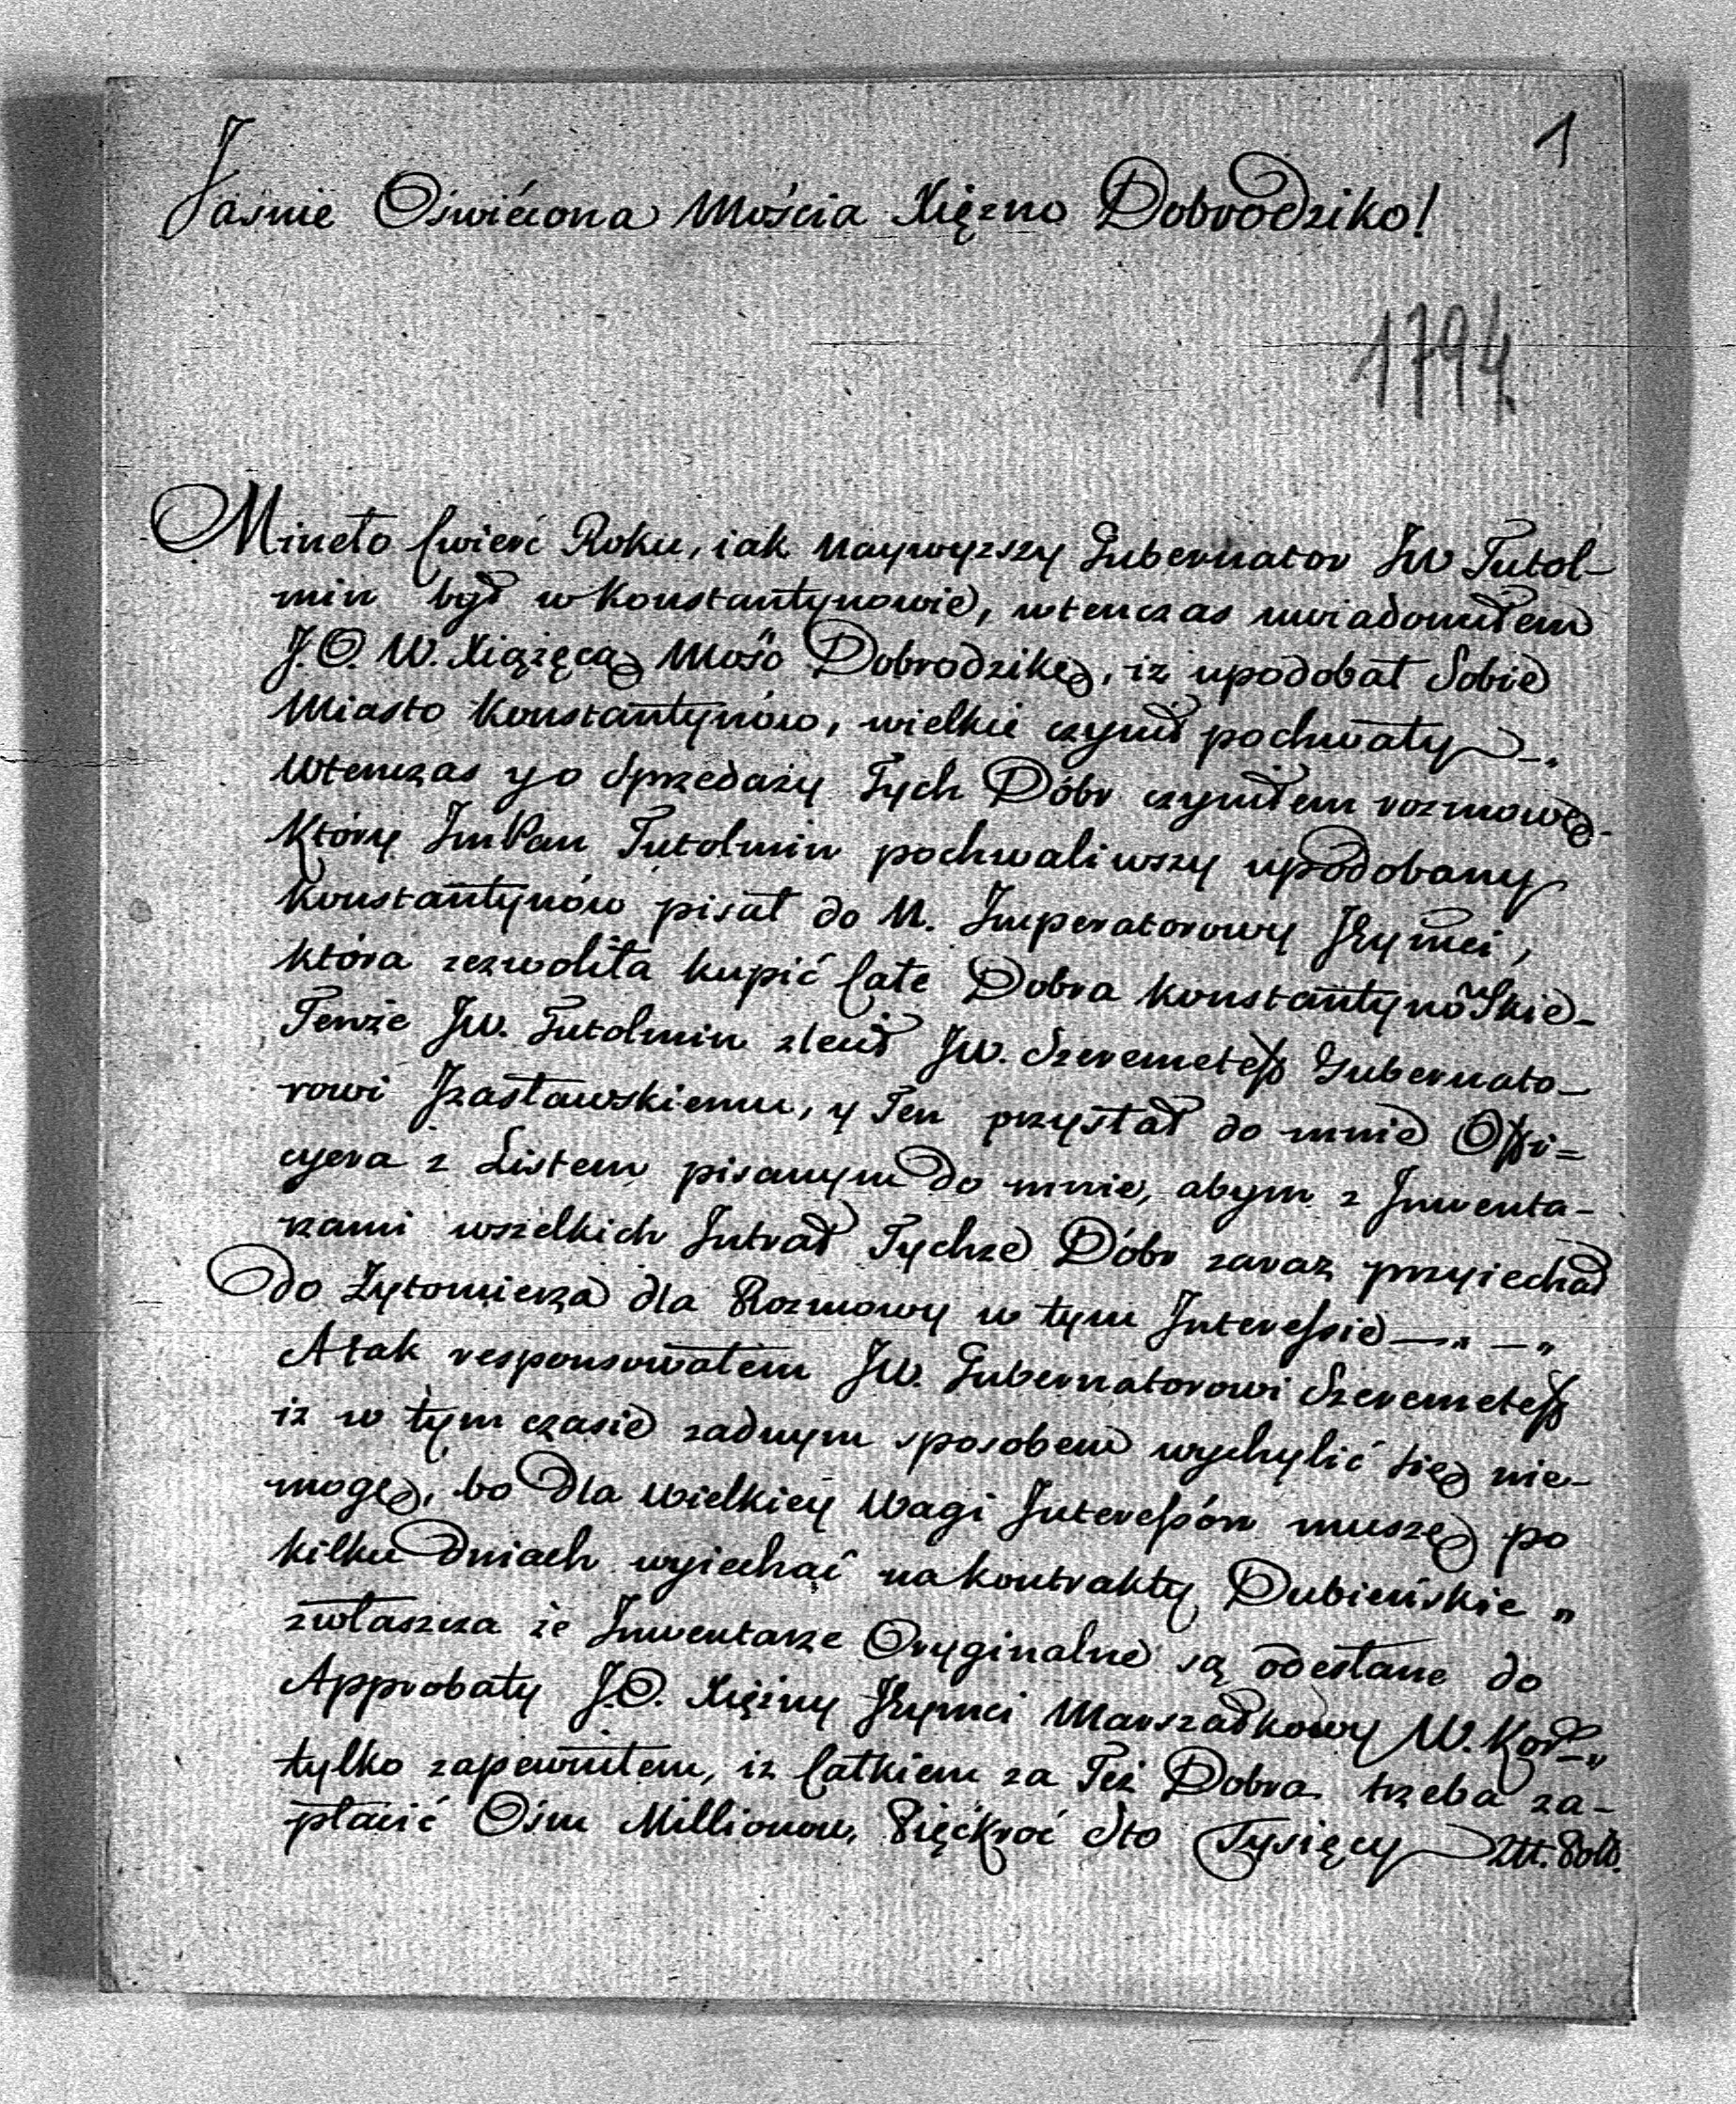 1
Jaśnie Oświćcona Mościa Xięzno Dobrodziko!
1794
Mineło ćwierć Roku, iak Naywyzszy Gubernator JW Tutol-
min był w Konstantynowie, wtenczas uwiadomiłem
J.O. W. Xiążęcą Mość Dobrodzikę, iz upodobał Sobie
Miasto Konstantynów, wielkie czynił pochwały
Wtenczas y o Sprzedaży Tych Dóbr czyniłem rozmowę
Który ImPan Tutolmin pochwaliwszy upodobany
Konstantynów pisał do N. Imperatorowy Jeymci,
która zezwoliła kupić Całe Dobra Konstantynowskie
Tenże JW. Tutolmin zlecił JW. Szeremeteff Gubernato-
rowi Jzasławskiemu, y Ten przysłał do mnie Offi=
cyera z Listem pisanym do mnie, abym z Jnwenta-
rzami wszelkich Jntrat Tychże Dóbr zaraz przyiechał
do Żytomierza dla Rozmowy w tym Jnteressie
A tak responsowałem JW. Gubernatorowi Szeremeteff
iz w tym czasie zadnym sposobem wychylić się nie-
mogę, bo dla wielkiey Wagi Jnteressów muszę po
kilku dniach wyiechać na kontrakty Dubieńskie „
zwłaszcza że Jnwentarze Oryginalne są odesłane do
Approbaty J.O. Xiężny Jeymci Marszałkowy W. Kor.
tylko zapewniłem, iz Całkiem za Też Dobra trzeba za-
płacić Ośm Millionow, Pięćkroć Sto Tysięcy Złł. Poll.